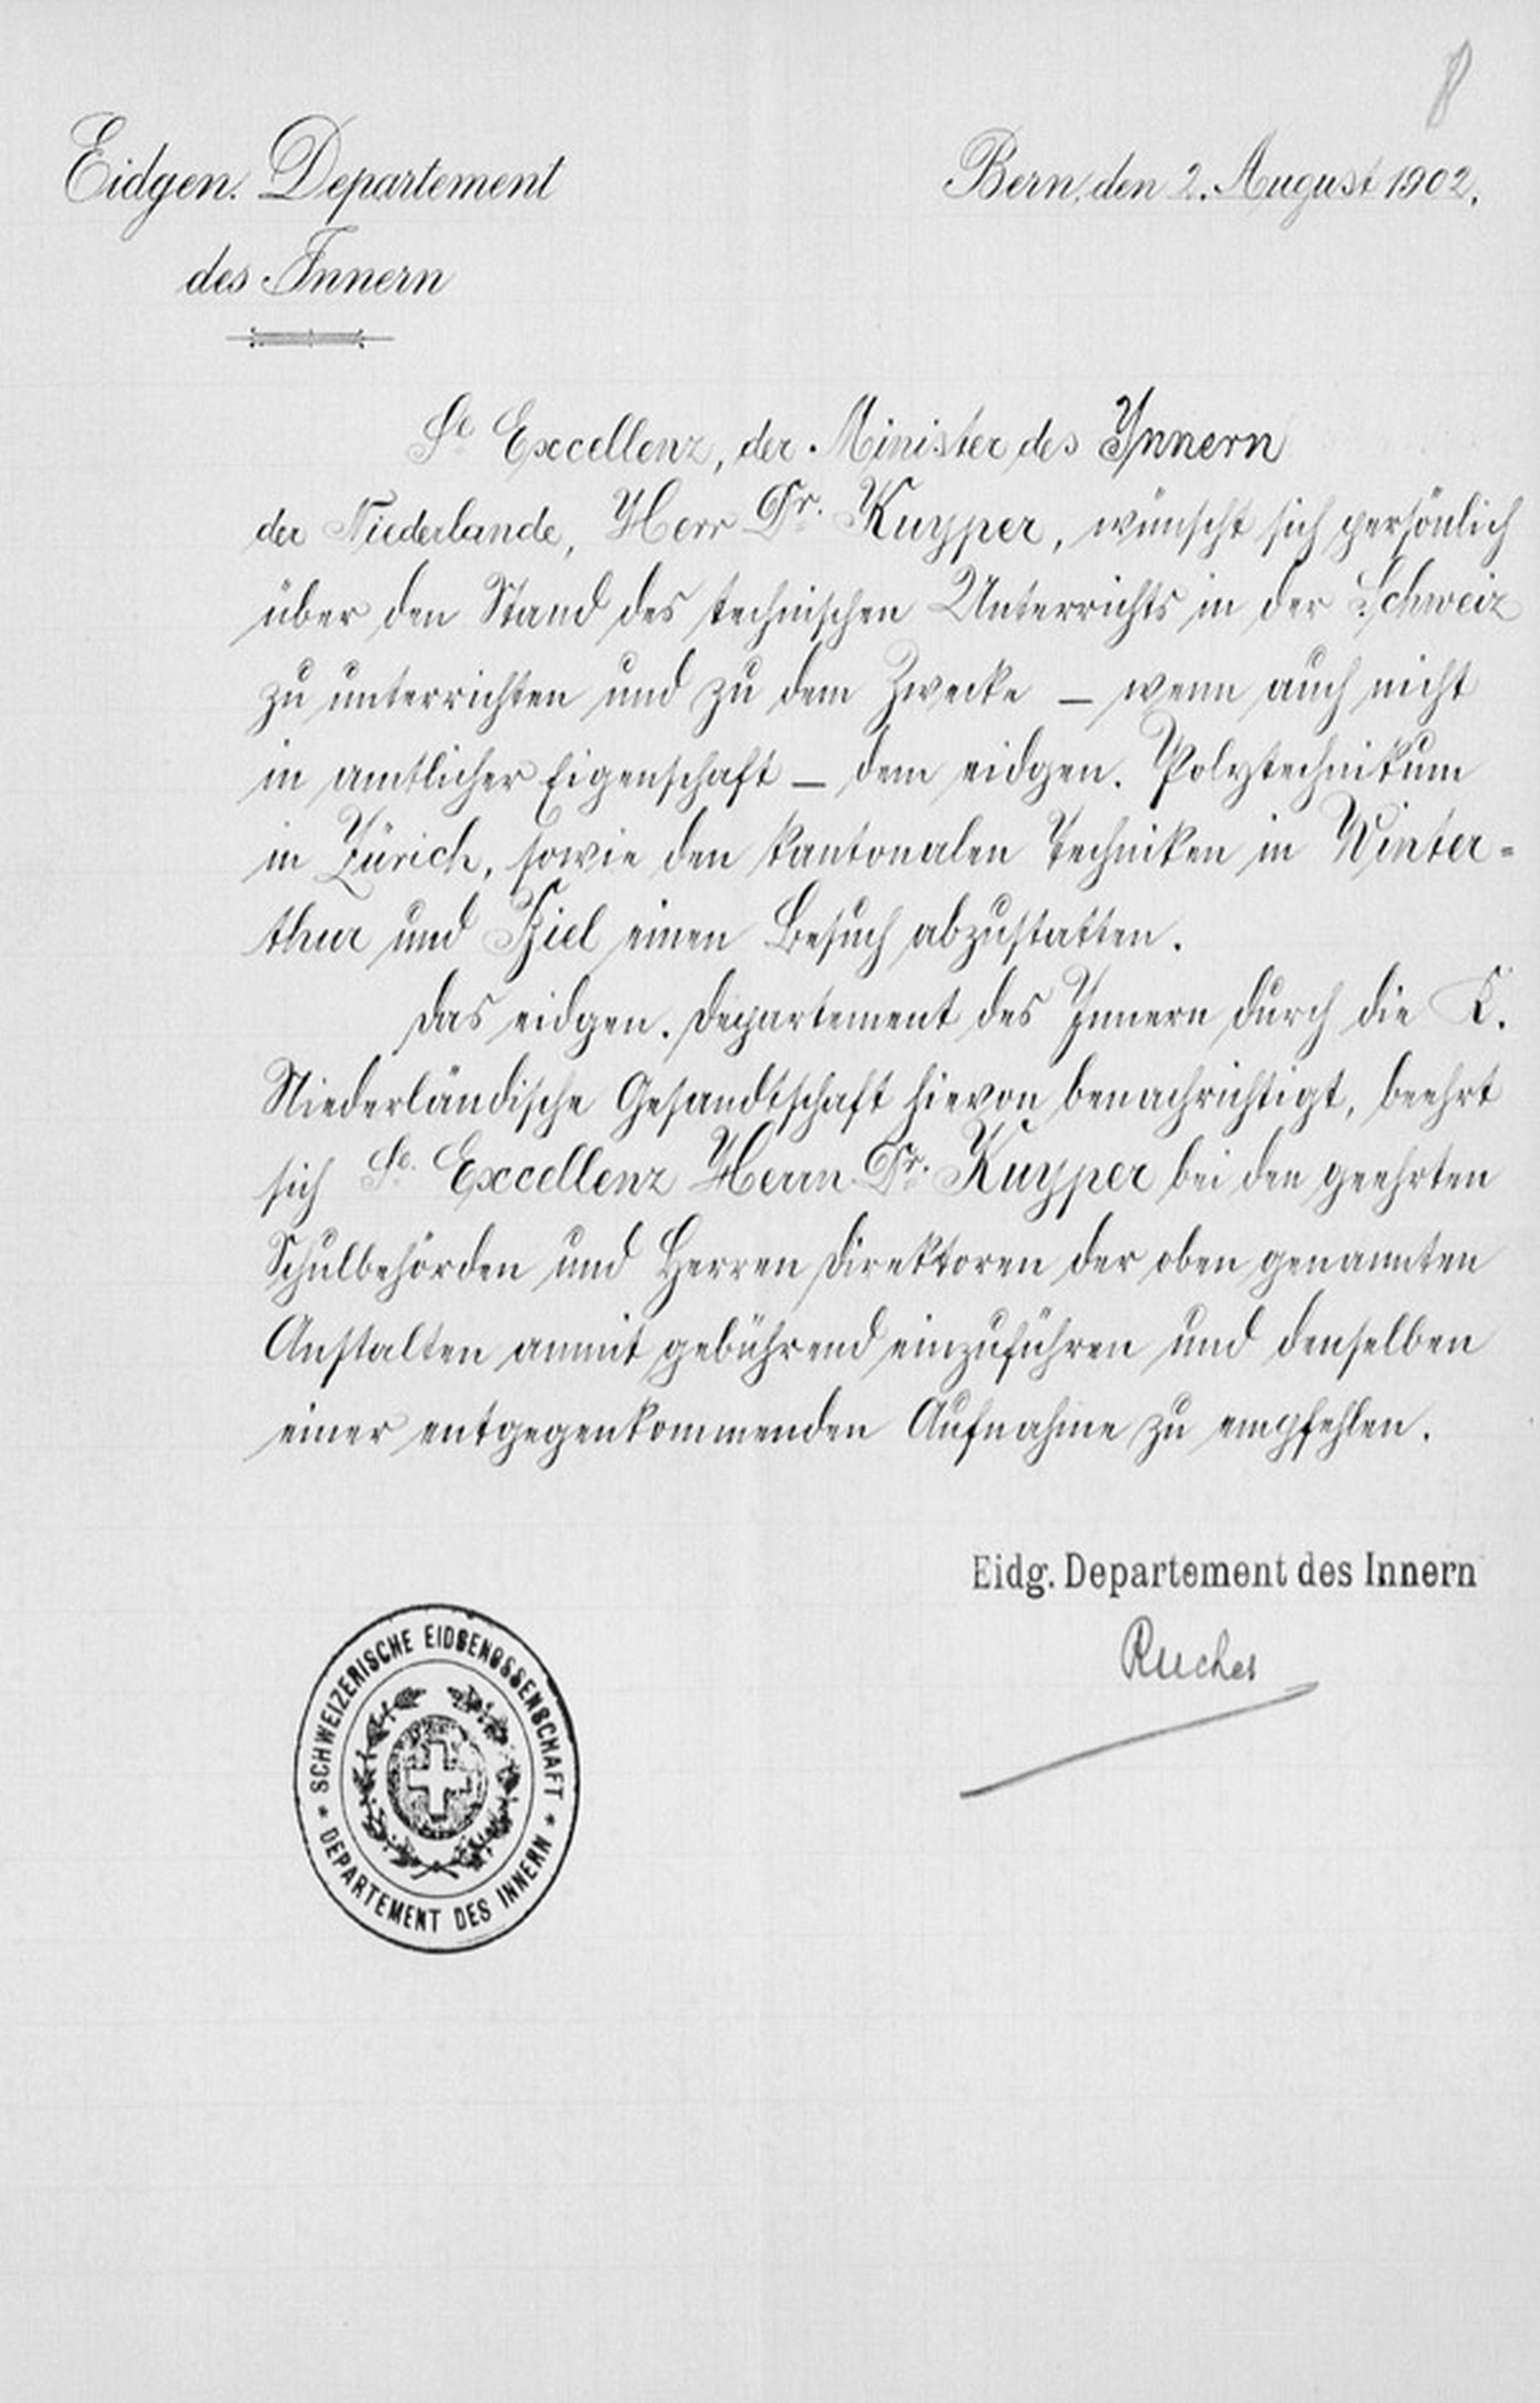 8
Eidgen. Departement
des Innern
Bern, den 2. August 1902.
Se. Excellenz, der Minister des Innern
der Niederlande, Herr Dr. Kuyper, wünscht sich persönlich
über den Stand des technischen Unterrichts in der Schweiz
zu unterrichten und zu dem Zwecke – wenn auch nicht
in amtlicher Eigenschaft – dem eidgen. Polytechnikum
in Zürich, sowie den kantonalen Techniken in Winter=
thur und Biel einen Besuch abzustatten.
Das eidgen. Departement des Innern durch die K.
Niederländische Gesandtschaft hievon benachrichtigt, beehrt
sich Se. Excellenz Herrn Dr. Kuyper bei den geehrten
Schulbehörden und Herren Direktoren der oben genannten
Anstalten anmit gebührend einzuführen und denselben
einer entgegenkommenden Aufnahme zu empfehlen.
Eidg. Departement des Innern
Ruchet
SCHWEIZERISCHE EIDGENOSSENSCHAFT
* DEPARTEMENT DES INNERN *